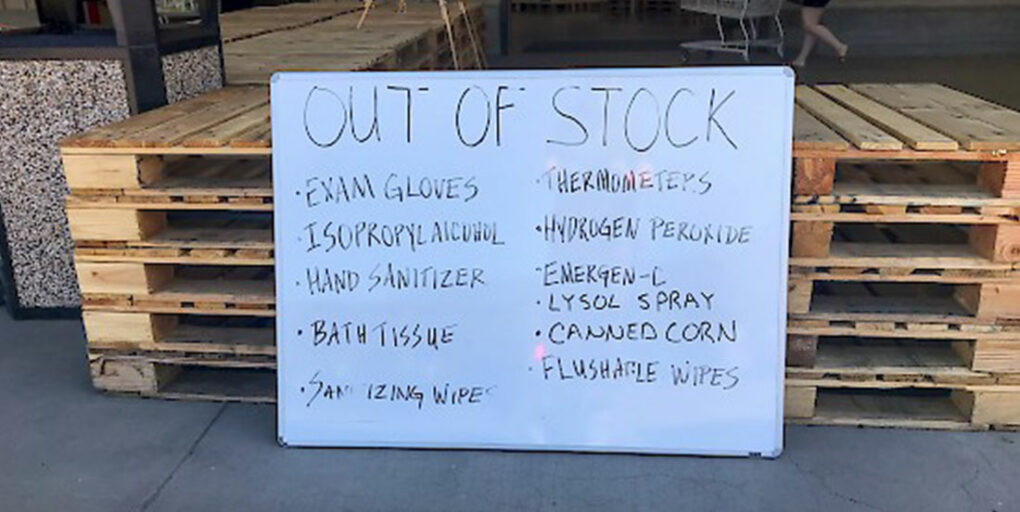 OUT OF STOCK
·EXAM GLOVES
·ISOPROPYL ALCOHOL
·HAND SANITIZER
·BATH TISSUE
·SANITIZING WIPES
·THERMOMETERS
·HYDROGEN PEROXIDE
·EMERGEN-C
·LYSOL SPRAY
·CANNED CORN
·FLUSHABLE WIPES